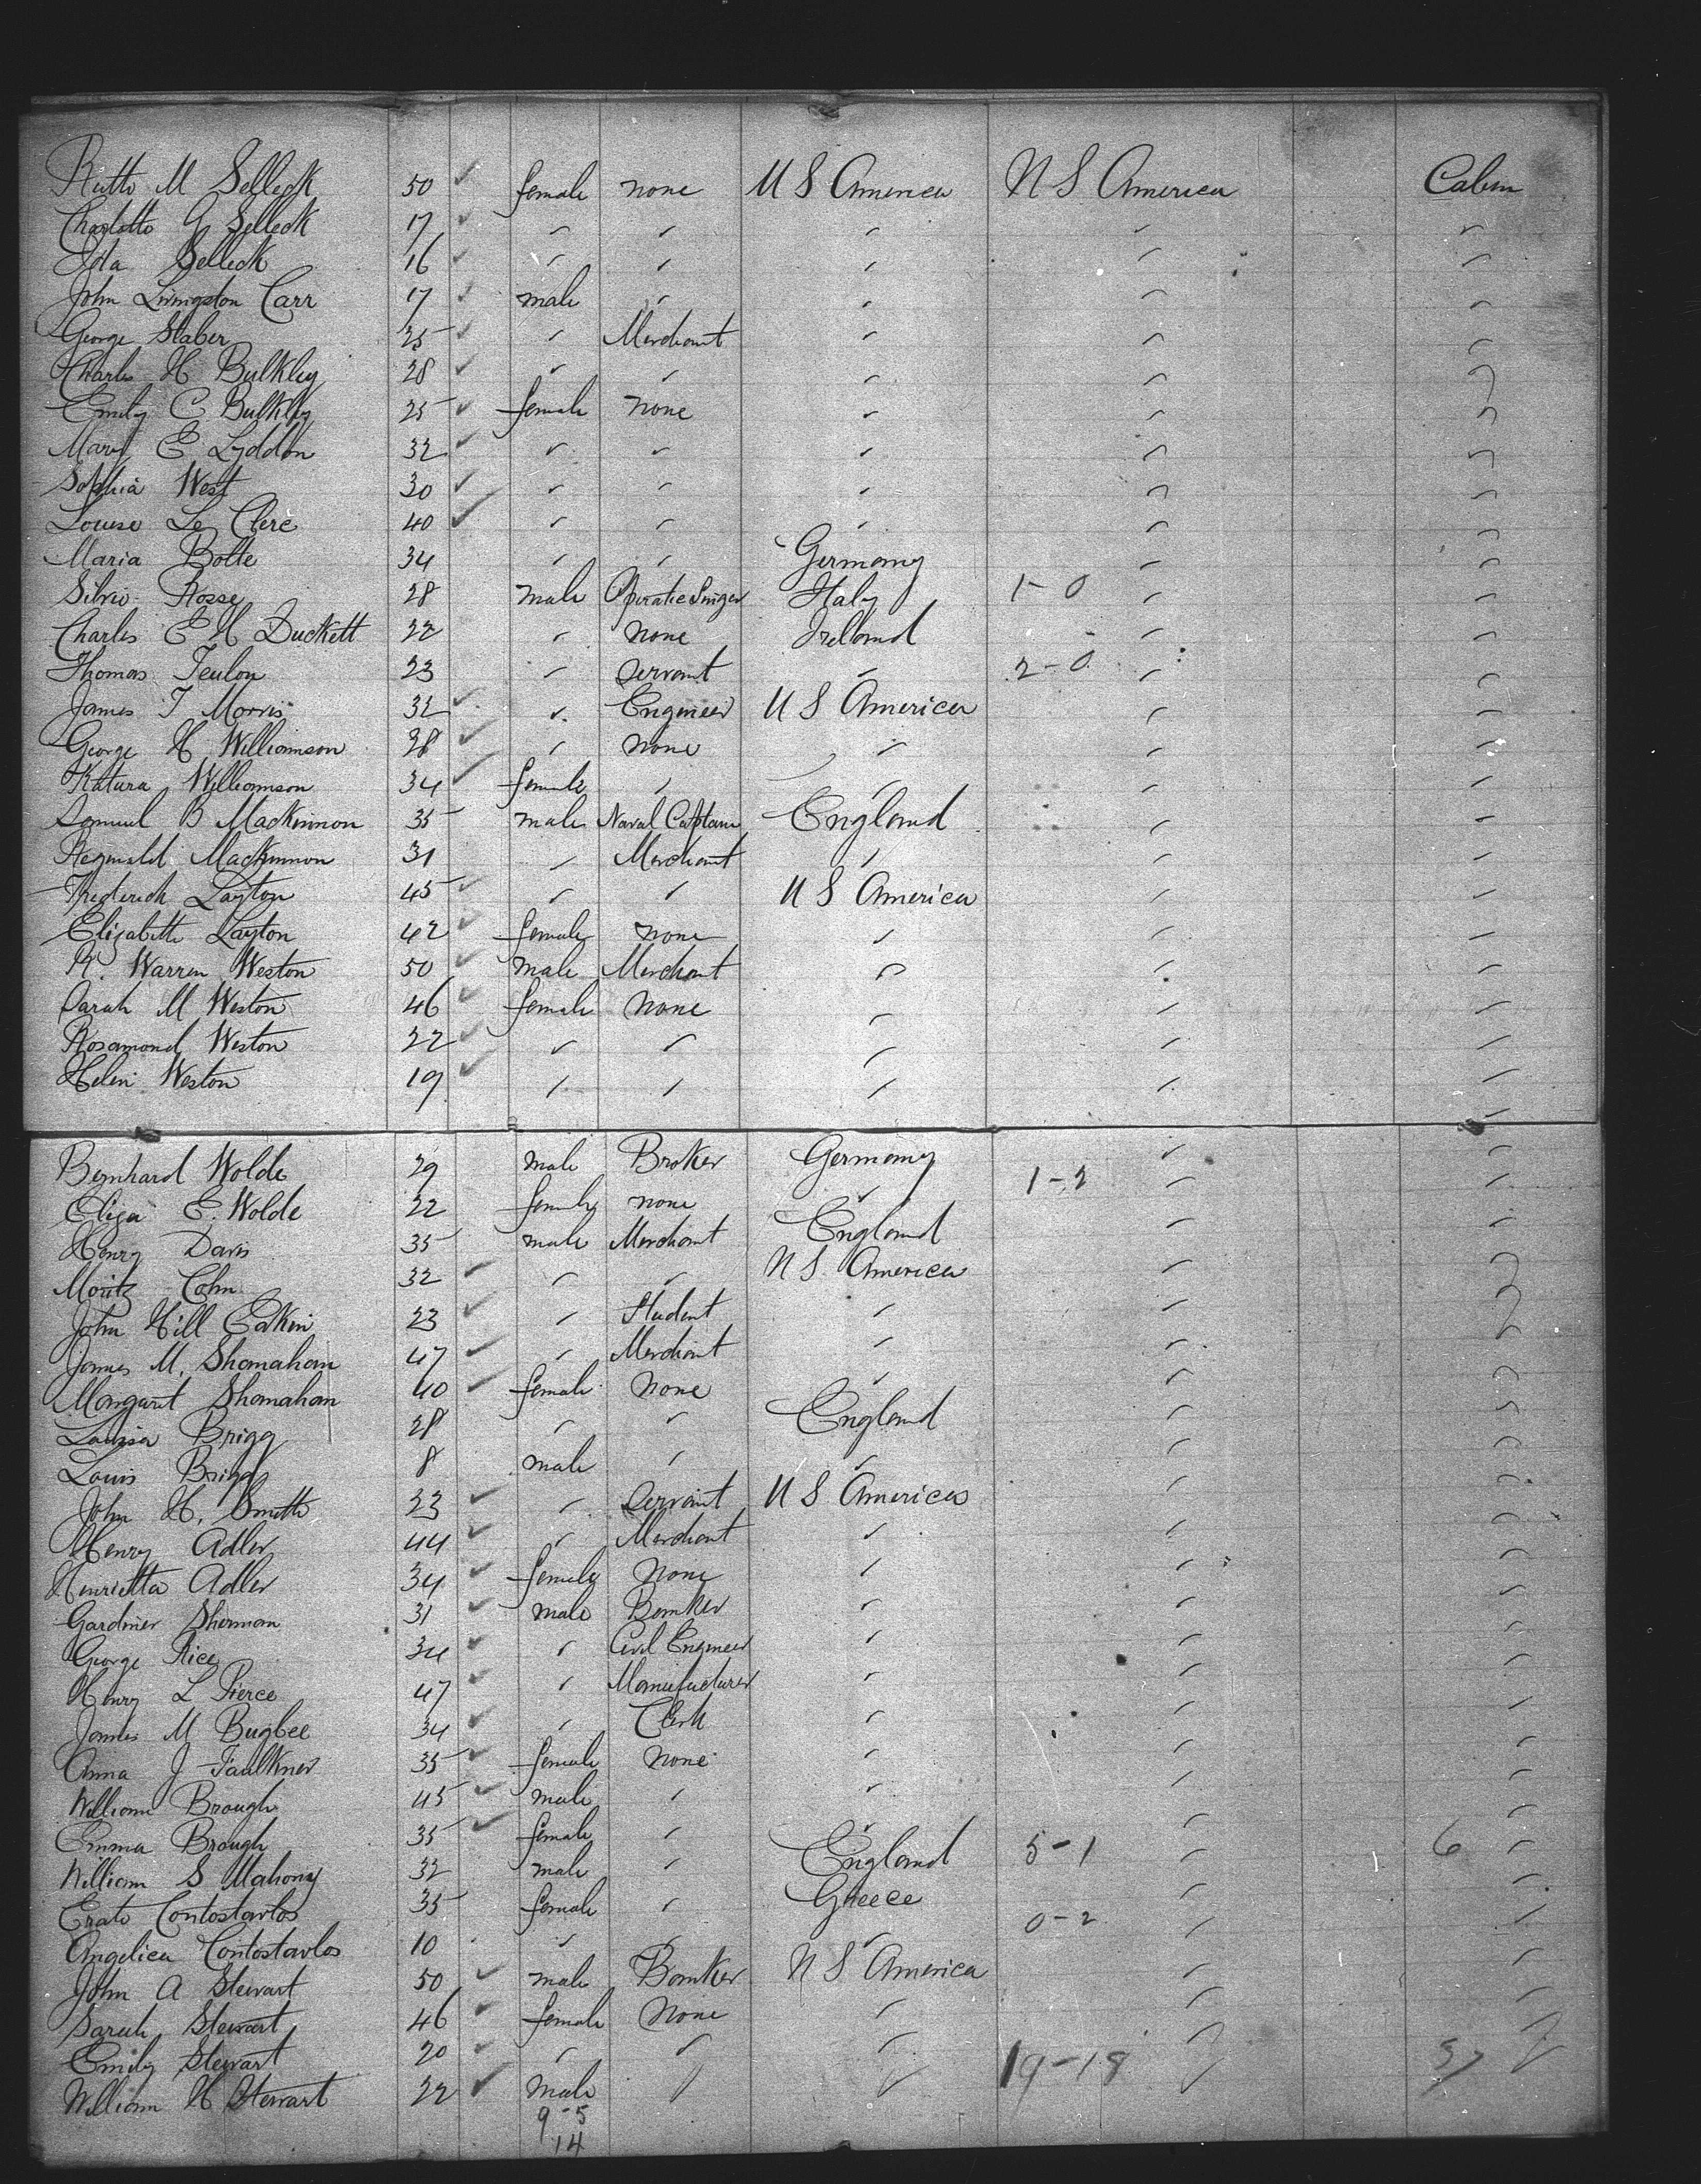 Ruth M Selleck 50 ✓ female none U S America U S America Cabin
Charlotte G Selleck 17 ✓ " " " " "
Ida Selleck 16 ✓ " " " " "
John Livingston Carr 17 ✓ male " " " "
George Staber 25 ✓ " Merchant " " "
Charles H Bulkley 28 ✓ " " " " "
Emily C Bulkley 25 ✓ female none " " "
Mary E Lyddon 32 ✓ " " " " "
Sophia West 30 ✓ " " " " "
Louise Le Clerc 40 ✓ " " " " "
Maria Bolte 34 " " Germany " "
Silvio Rosse 28 male Operatic Singer Italy 1-0 " "
Charles E H Duckett 22 " None Ireland " "
Thomas Teulon 23 " Servant " 2-0 " "
James T Morris 32 ✓ " Engineer U S America " "
George H Williamson 38 ✓ " None " " "
Katura Williamson 34 ✓ female " " " "
Samuel B Mackinnon 35 male Naval Captain England " "
Reginald Mackinnon 31 " Merchant " " "
Frederick Layton 45 ✓ " " U S America " "
Elizabeth Layton 42 ✓ female none " " "
R. Warren Weston 50 ✓ male Merchant " " "
Sarah M Weston 46 ✓ female None " " "
Rosamond Weston 22 ✓ " " " " "
Helen Weston 19 ✓ " " " " "
Bernhard Wolde 29 male Broker Germany " "
Eliza E. Wolde 22 female none " 1-2 " "
Henry Davis 35 male Merchant England " "
Moritz Cohn 32 ✓ " " U S America " "
John Hill Eakin 23 ✓ " Student " " "
James M. Shanahan 47 ✓ " Merchant " " "
Margaret Shanahan 40 ✓ female None " " "
Louisa Brigg 28 " " England " "
Louis Brigg 8 male " " " "
John H. Smith 23 ✓ " Servant U S America " "
Henry Adler 44 ✓ " Merchant " " "
Henrietta Adler 34 ✓ female None " " "
Gardiner Sherman 31 ✓ male Banker " " "
George Rice 34 ✓ " Civil Engineer " " "
Henry L Pierce 47 ✓ " Manufacturer " " "
James M Bugbee 34 ✓ " Clerk " " "
Anna J Faulkner 35 ✓ female None " " "
William Brough 45 ✓ male " " " "
Emma Brough 35 ✓ female " " " "
William S Mahony 32 male " England 5-1 " 6 "
Erato Contostavlos 35 female " Greece " "
Angelica Contostavlos 10 " " " 0-2 " "
John A Stewart 50 ✓ male Banker U S America " "
Sarah Stewart 46 ✓ female None " " "
Emily Stewart 20 ✓ " " " " "
William H Stewart 22 ✓ Male " " 19-18 " 37 "
9-5
14